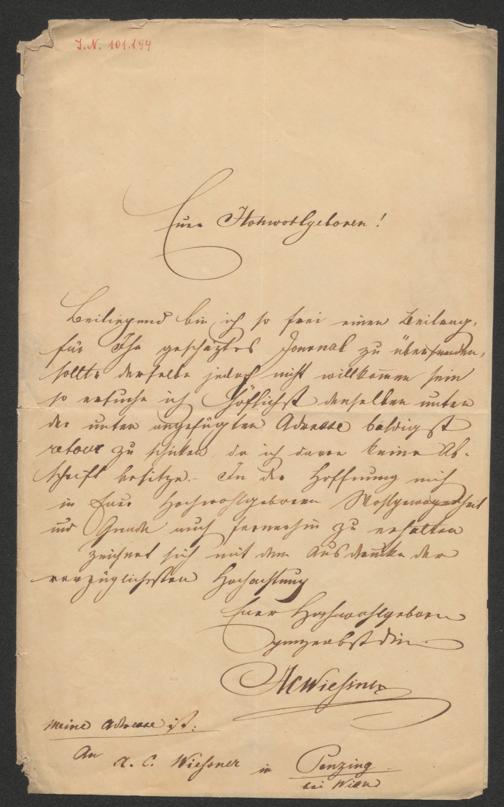 I.N. 101.194
Euer Hochwohlgeboren!
Beiliegend bin ich so frei einen Beitrag,
für Ihr geschäztes Journal zu übersenden,
sollte derselbe jedoch nicht willkommen sein
so ersuche ich höflichst denselben unter
der unten angefügten Adresse baldigst
retour zu schicken, da ich davon keine Ab-
schrift besitze. In der Hoffnung mich
in Euer Hochwohlgeboren Wohlgewogenheit
und Gnade auch fernerhin zu erhalten
zeichnet sich mit dem Ausdrucke der
vorzüglichsten Hochachtung
Euer Hochwohlgeboren
ganzerbstdin
ACWiesner
Meine Adresse ist:
An A. C. Wiesner in Penzing
bei Wien